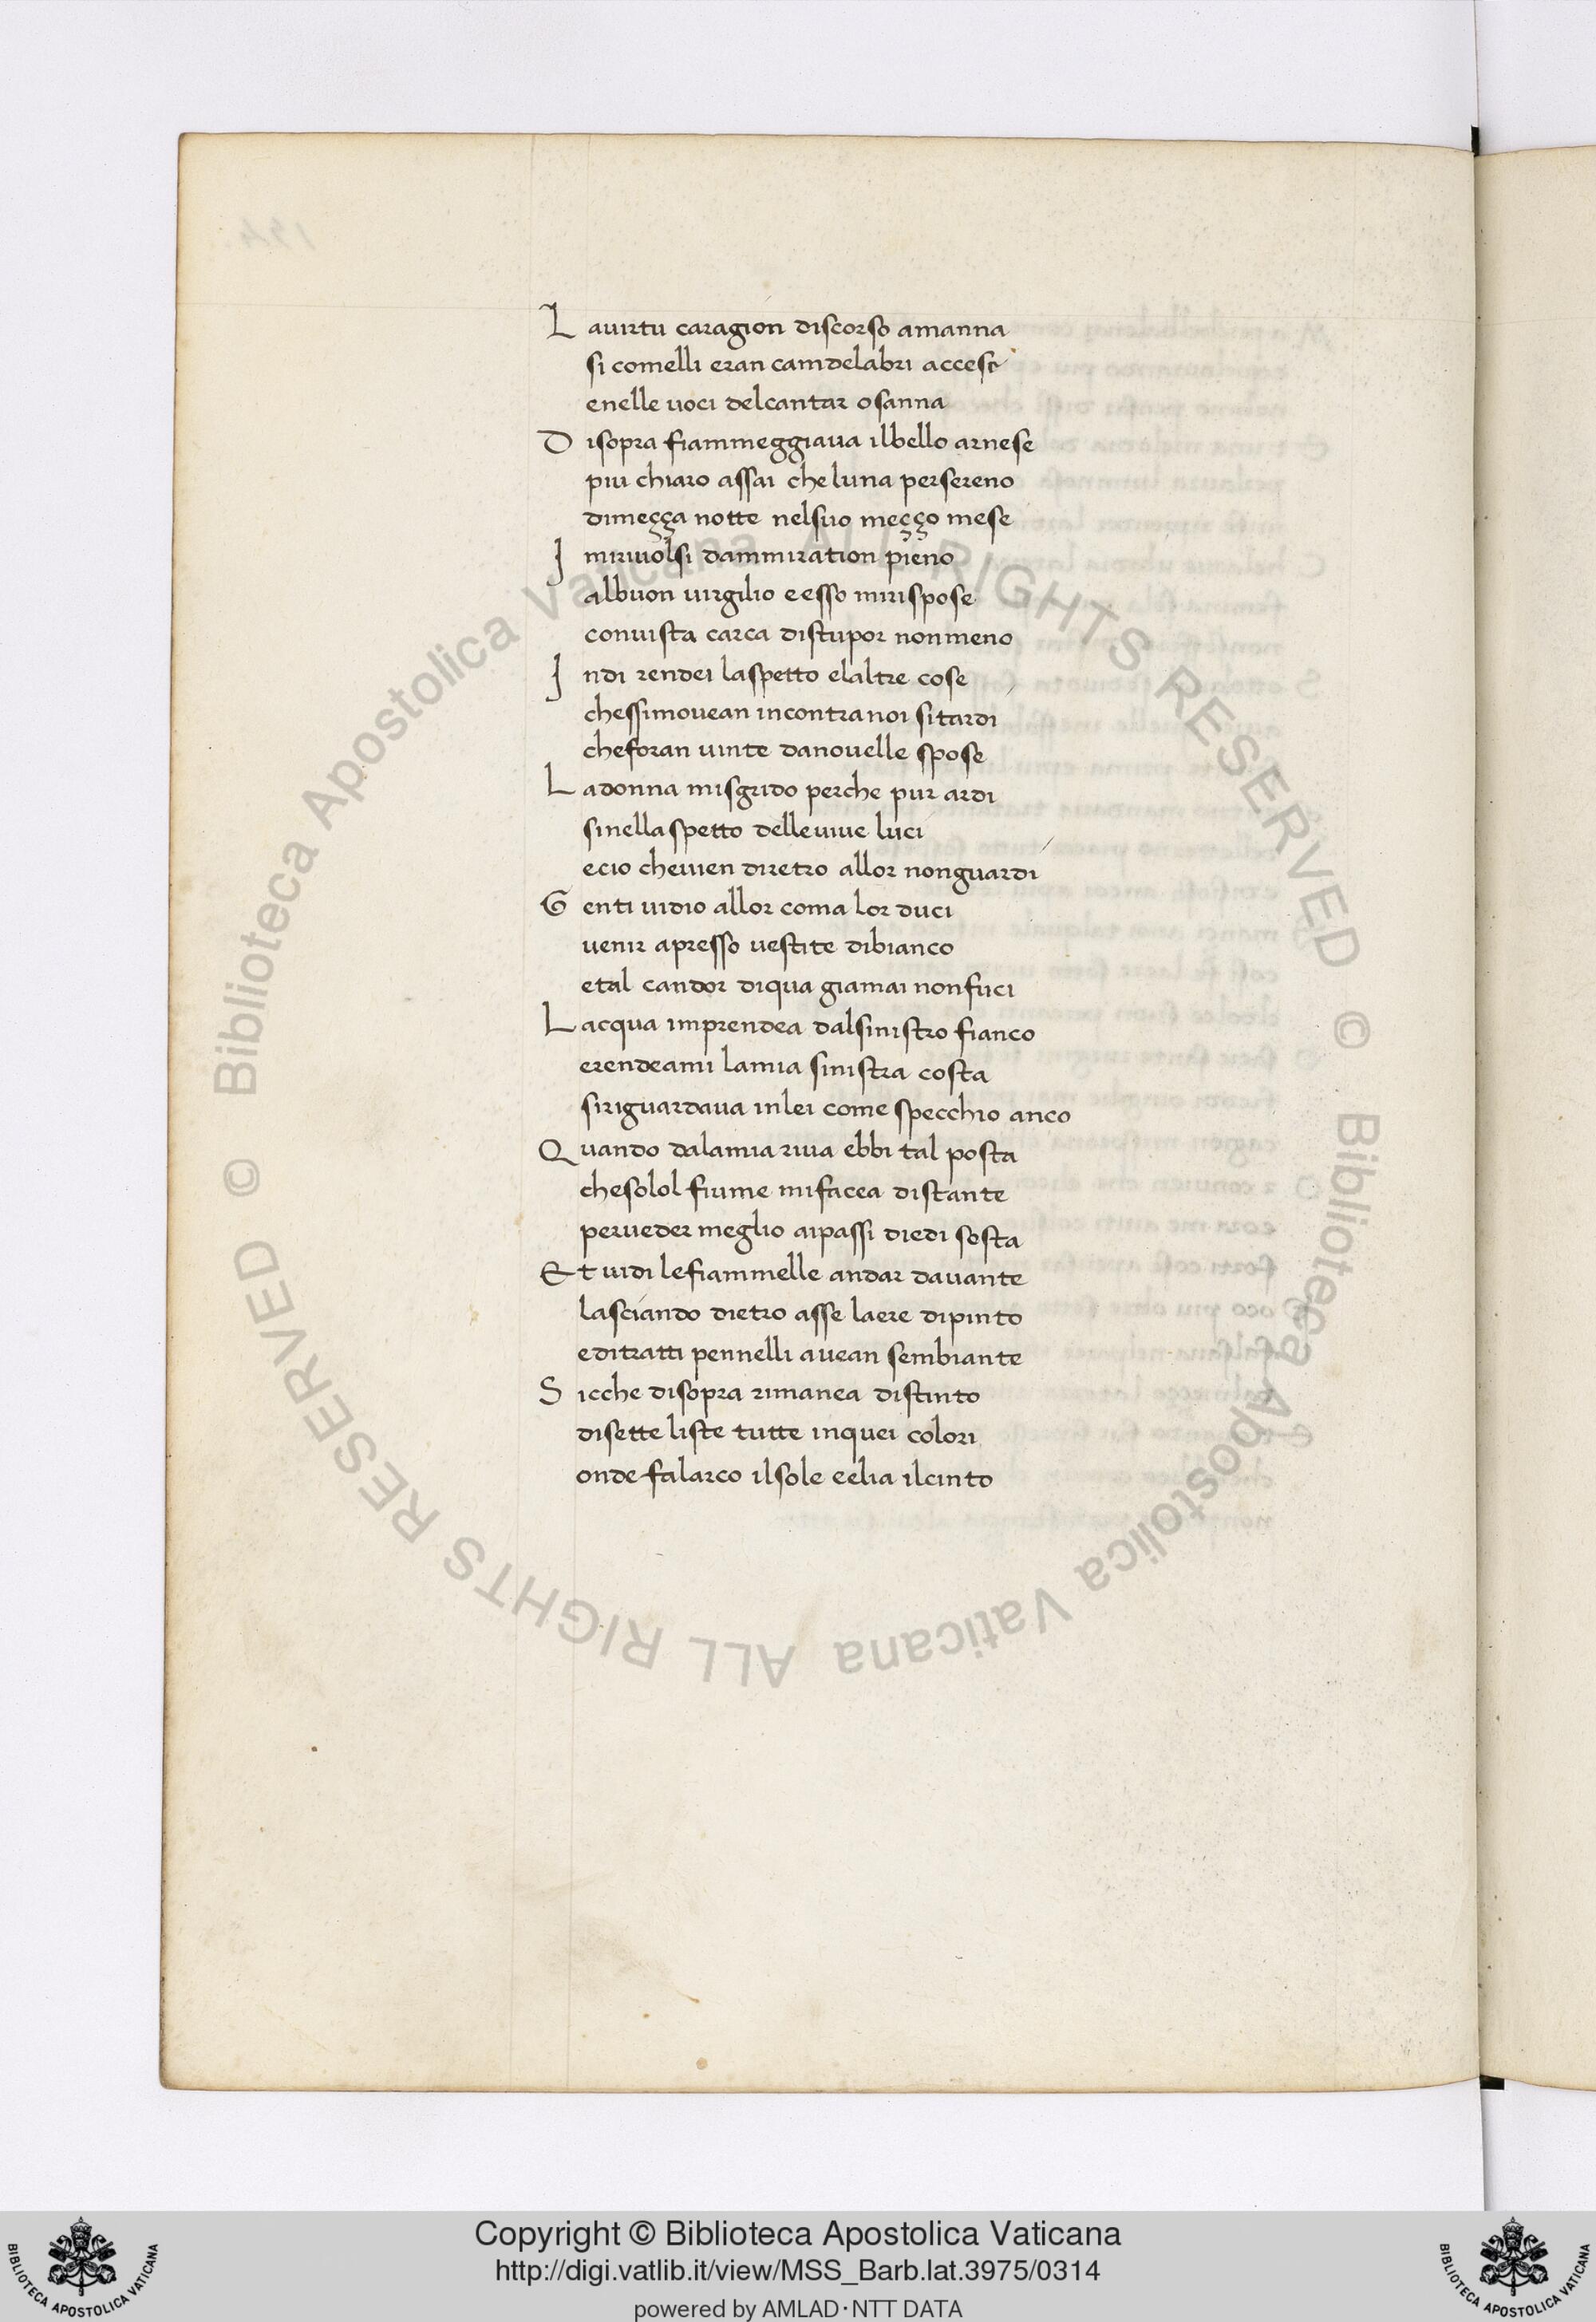 L auirtu caragion discorso amanna
si comelli eran camdelabri accese
enelle uoci delcantar osanna
D isopra fiammeggiaua ilbello arnese
piu chiaro assai cheluna persereno
dimeçça notte nelsuo meçço mese
I miriuolsi dammiration pieno
albuon uirgilio eesso mirispose
conuista carca distupor nonmeno
I ndi rendei laspetto elaltre cose
chessimouean incontranoi sitardi
cheforan uinte danouelle spose
L adonna misgrido perche pur ardi
sinellaspetto delleuiue luci
ecio cheuien diretro allor nonguardi
G enti uidio allor coma lor duci
uenir apresso uestite dibianco
etal candor diqua giamai nonfuci
L acqua imprendea dalsinistro fianco
erendeami lamia sinistra costa
siriguardaua inlei come specchio anco
Q uando dalamia riua ebbi tal posta
chesolol fiume mifacea distante
perueder meglio aipassi diedi sosta
E t uidi lefiammelle andar dauante
lasciando dietro asse laere dipinto
editratti pennelli auean sembiante
S icche disopra rimanea distinto
disette liste tutte inquei colori
onde falarco ilsole eelia ilcinto
© Biblioteca Apostolica Vaticana ALL RIGHTS RESERVED © Biblioteca Apostolica Vaticana ALL RIGHTS RESERVED
Copyright © Biblioteca Apostolica Vaticana
http://digi.vatlib.it/view/MSS_Barb.lat.3975/0314
powered by AMLAD·NTT DATA
BIBLIOTECA APOSTOLICA VATICANA
BIBLIOTECA APOSTOLICA VATICANA